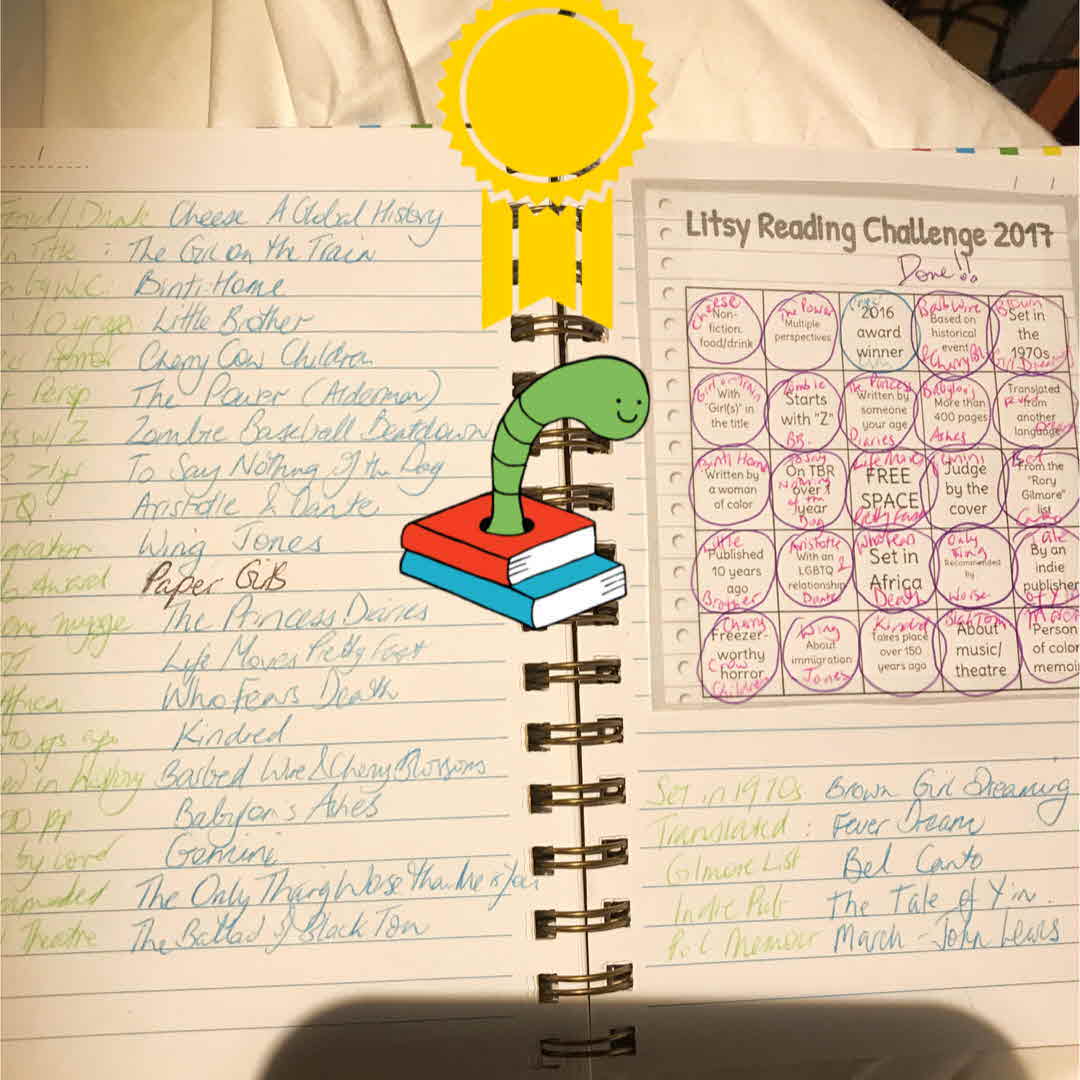 Drink Cheese A Global History
Title : The Girl on the Train
by W.C. Binti: Home
10 years Little Brother
Horror Cherry Crow Children
Persp The Power (Alderman)
w/Z Zombie Baseball Beatdown
>1yr To Say Nothing of the Dog
Q. Aristotle & Dante
Wing Jones
Award Paper Girls
my age The Princess Diaries
Life Moves Pretty Fast
Africa Who Fears Death
yrs ago Kindred
in history Barbed Wire & Cherry Blossoms
pp Babylon's Ashes
by cover Gemini
The Only Thing Worse Than Me is You
Theatre The Ballad of Black Tom
Litsy Reading Challenge 2017
Done!!
Cheese
Non-
fiction:
food/drink
The Power
Multiple
perspectives
2016
award
winner
Barb Wire
Based on
historical
event
& Cherry Bl
Brown
Set in
the
1970s
Girl Dreami
Girl on Train
With
"Girl(s)" in
the title
Zombie
Starts
with "Z"
BB.
The Princess
Written by
someone
your age
Diaries
Babylon's
More than
400 pages
Ashes
Translated
from
another
language
Binti Home
Written by
a woman
of color
To Say
On TBR
over 1
year
Nothing
of the
Dog
Life Moves
FREE
SPACE
Pretty Fast
Gemini
Judge
by the
cover
Bel
From the
"Rory
Gilmore"
list
Canto
Little
Published
10 years
ago
Brother
Aristotle
With an
LGBTQ
relationship
Dante
Who Fears
Set in
Africa
Death
Only
Thing
Recommended
by
Worse
Tale
By an
indie
publisher
of Yin
Cherry
Freezer-
worthy
horror
Crow
Children
Wing
About
immigration
Jones
Kindred
Takes place
over 150
years ago
Black Tom
About
music/
theatre
March
Person
of color
memoi
Set in 1970s Brown Girl Dreaming
Translated : Fever Dream
Gilmore List Bel Canto
Indie Pub The Tale of Yin.
P.o.C Memoir March - John Lewis